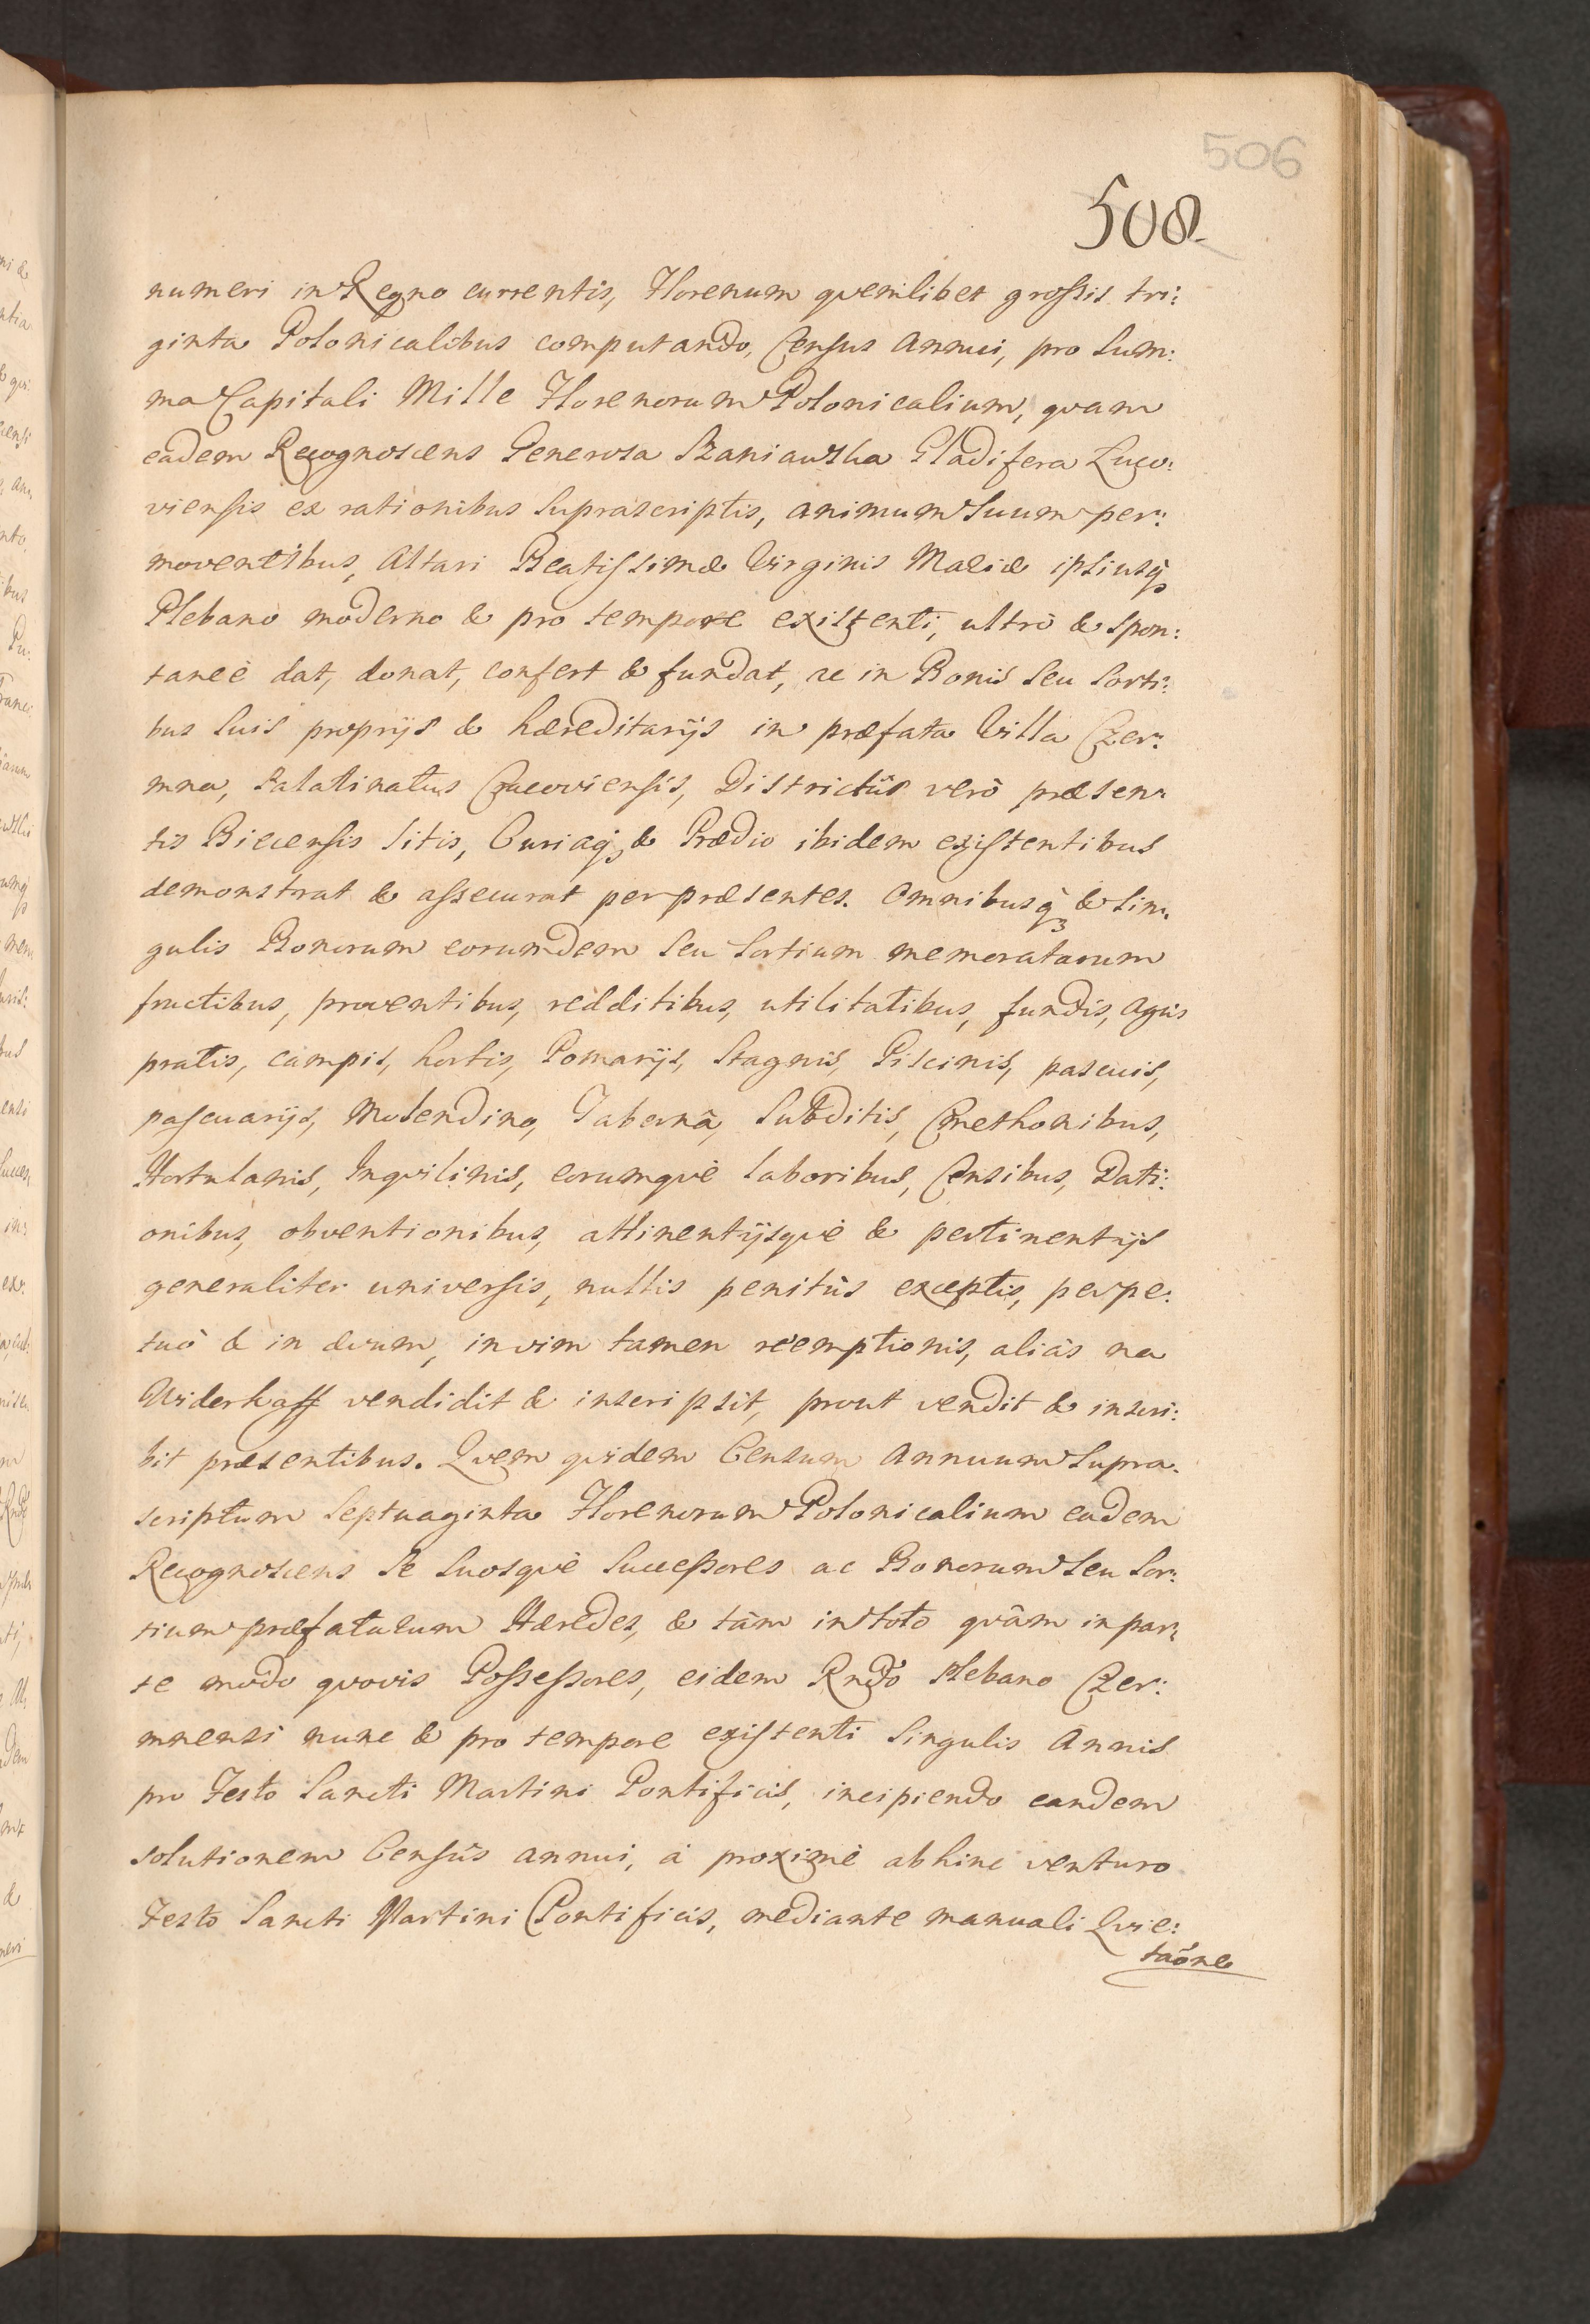 506
508
numeri in Regno currentis, Florenum qvemlibet grossis tri:
ginta Polonicalibus computando, Census Annui, pro Sum:
ma Capitali Mille Florenorum Polonicalium, qvam
eadem Recognoscens Generosa Szaniawska Gladifera Luco:
viensis ex rationibus Suprascriptis, animum Suum per:
moventibus, Altari Beatissimæ Virginis Mariæ ipsiusq;
Plebano moderno & pro tempore existenti, ultrò & Spon:
taneè dat, donat, confert & fundat, ac in Bonis Seu Sorti:
bus Suis proprijs & hæreditarijs in præfata Villa Czer:
mna, Palatinatus Cracoviensis, Districtûs verò præsen:
tis Biecensis Sitis, Curiaq; & Prædio ibidem existentibus
demonstrat & assecurat per præsentes. Omnibusq; & Sin:
gulis Bonorum eorundem Seu Sortium memoratarum
fructibus, proventibus, redditibus, utilitatibus, fundis, Agris
pratis, campis, hortis, Pomarijs, Stagnis, Piscinis, pascuis,
pascuarijs, Molendino, Tabernâ, Subditis, Cmethonibus,
Hortulanis, Inqvilinis, eorumqvè laboribus, Censibus, Dati:
onibus, obventionibus, attinentijsqvè & pertinentijs
generaliter universis, nullis penitùs exceptis, perpe:
tuò & in ævum, in vim tamen reemptionis, aliàs na
Widerkaff vendidit & inscripsit, prout vendit & inscri:
bit præsentibus. Qvem qvidem Censum Annuum Supra:
scriptum Septuaginta Florenorum Polonicalium eadem
Recognoscens Se Suosqvè Successores ac Bonorum Seu Sor:
tium præfatarum Hæredes, & tàm in toto qvàm in par:
te modo qvovis Possessores, eidem Rndo Plebano Czer:
mnensi nunc & pro tempore existenti Singulis Annis
pro Festo Sancti Martini Pontificis, incipiendo eandem
solutionem Censûs annui, à proximè abhinc venturo
Festo Sancti Martini Pontificis, mediante manuali Qvie:
taõne